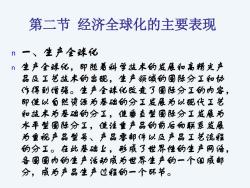 第二节 经济全球化的主要表现
一、生产全球化
生产全球化，即随着科学技术的发展和高精尖产
品及工艺技术的出现，生产领域的国际分工和协
作得到增强。生产全球化改变了国际分工的内容，
即使以自然资源为基础的分工发展为以现代工艺
和技术为基础的分工，使垂直型国际分工发展为
水平型国际分工，使注重产品的前后向联系发展
为重视产品型号、产品零部件以及产品工艺流程
的分工。在此基础上，形成了世界性的生产网络，
各国国内的生产活动成为世界生产的一个组成部
分，成为产品生产过程的一个环节。